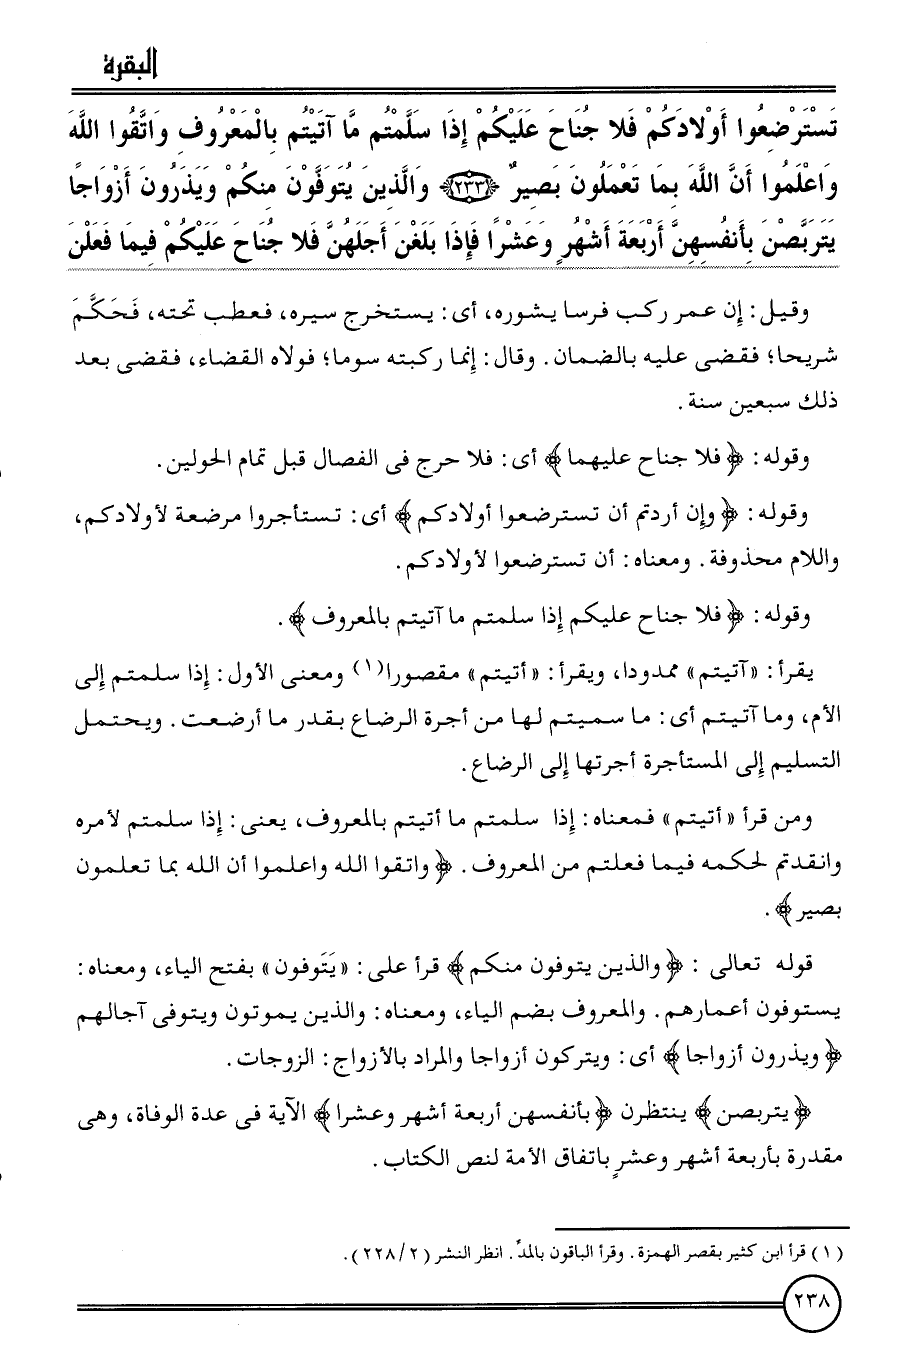 البقرة
تَسْتَرْضِعُوا أَوْلادَكُمْ فَلا جُنَاحَ عَلَيْكُمْ إِذَا سَلَّمْتُم مَّا آتَيْتُم بِالْمَعْرُوفِ وَاتَّقُوا اللَّهَ
وَاعْلَمُوا أَنَّ اللَّهَ بِمَا تَعْمَلُونَ بَصِيرٌ ﴿٢٣٣﴾ وَالَّذِينَ يُتَوَفَّوْنَ مِنكُمْ وَيَذَرُونَ أَزْوَاجًا
يَتَرَبَّصْنَ بِأَنفُسِهِنَّ أَرْبَعَةَ أَشْهُرٍ وَعَشْرًا فَإِذَا بَلَغْنَ أَجَلَهُنَّ فَلا جُنَاحَ عَلَيْكُمْ فِيمَا فَعَلْنَ
وقيل: إن عمر ركب فرسا يشوره، أى: يستخرج سيره، فعطب تحته، فَحَكَّمَ
شريحا؛ فقضى عليه بالضمان. وقال: إنما ركبته سوما؛ فولاه القضاء، فقضى بعد
ذلك سبعين سنة.
وقوله: ﴿فلا جناح عليهما﴾ أى: فلا حرج فى الفصال قبل تمام الحولين.
وقوله: ﴿وإن أردتم أن تسترضعوا أولادكم﴾ أى: تستأجروا مرضعة لأولادكم،
واللام محذوفة. ومعناه: أن تسترضعوا لأولادكم.
وقوله: ﴿فلا جناح عليكم إذا سلمتم ما آتيتم بالمعروف﴾.
يقرأ: «آتيتم» ممدودا، ويقرأ: «أتيتم» مقصورا(١) ومعنى الأول: إذا سلمتم إلى
الأم، وما آتيتم أى: ما سميتم لها من أجرة الرضاع بقدر ما أرضعت. ويحتمل
التسليم إلى المستأجرة أجرتها إلى الرضاع.
ومن قرأ «أتيتم» فمعناه: إذا سلمتم ما أتيتم بالمعروف، يعنى: إذا سلمتم لأمره
وانقدتم لحكمه فيما فعلتم من المعروف. ﴿واتقوا الله واعلموا أن الله بما تعلمون
بصير﴾.
قوله تعالى : ﴿والذين يتوفون منكم﴾ قرأ على: «يَتَوفون» بفتح الياء، ومعناه:
يستوفون أعمارهم. والمعروف بضم الياء، ومعناه: والذين يموتون ويتوفى آجالهم
﴿ويذرون أزواجا﴾ أى: ويتركون أزواجا والمراد بالأزواج: الزوجات.
﴿يتربصن﴾ ينتظرن ﴿بأنفسهن أربعة أشهر وعشرا﴾ الآية فى عدة الوفاة، وهى
مقدرة بأربعة أشهر وعشرٍ باتفاق الأمة لنص الكتاب.
(١) قرأ ابن كثير بقصر الهمزة. وقرأ الباقون بالمدِّ. انظر النشر (٢/ ٢٢٨).
٢٣٨